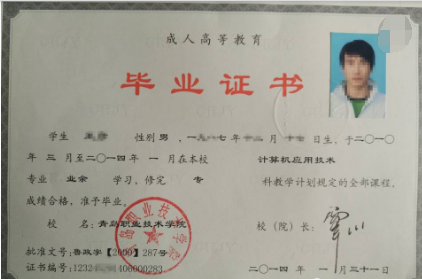 成人高等教育
毕业证书
学生 性别 男 , 一九八七年十二月 日生, 于二〇一〇
年 三 月至二〇一四年 一 月在本校 计算机应用技术
专业 业余 学习, 修完 专 科教学计划规定的全部课程,
成绩合格, 准予毕业。
校 名: 青岛职业技术学院 校(院)长:
批准文号: 鲁政字【2000】287号
证书编号: 1232 400000283 二〇一四年 一 月三十一日